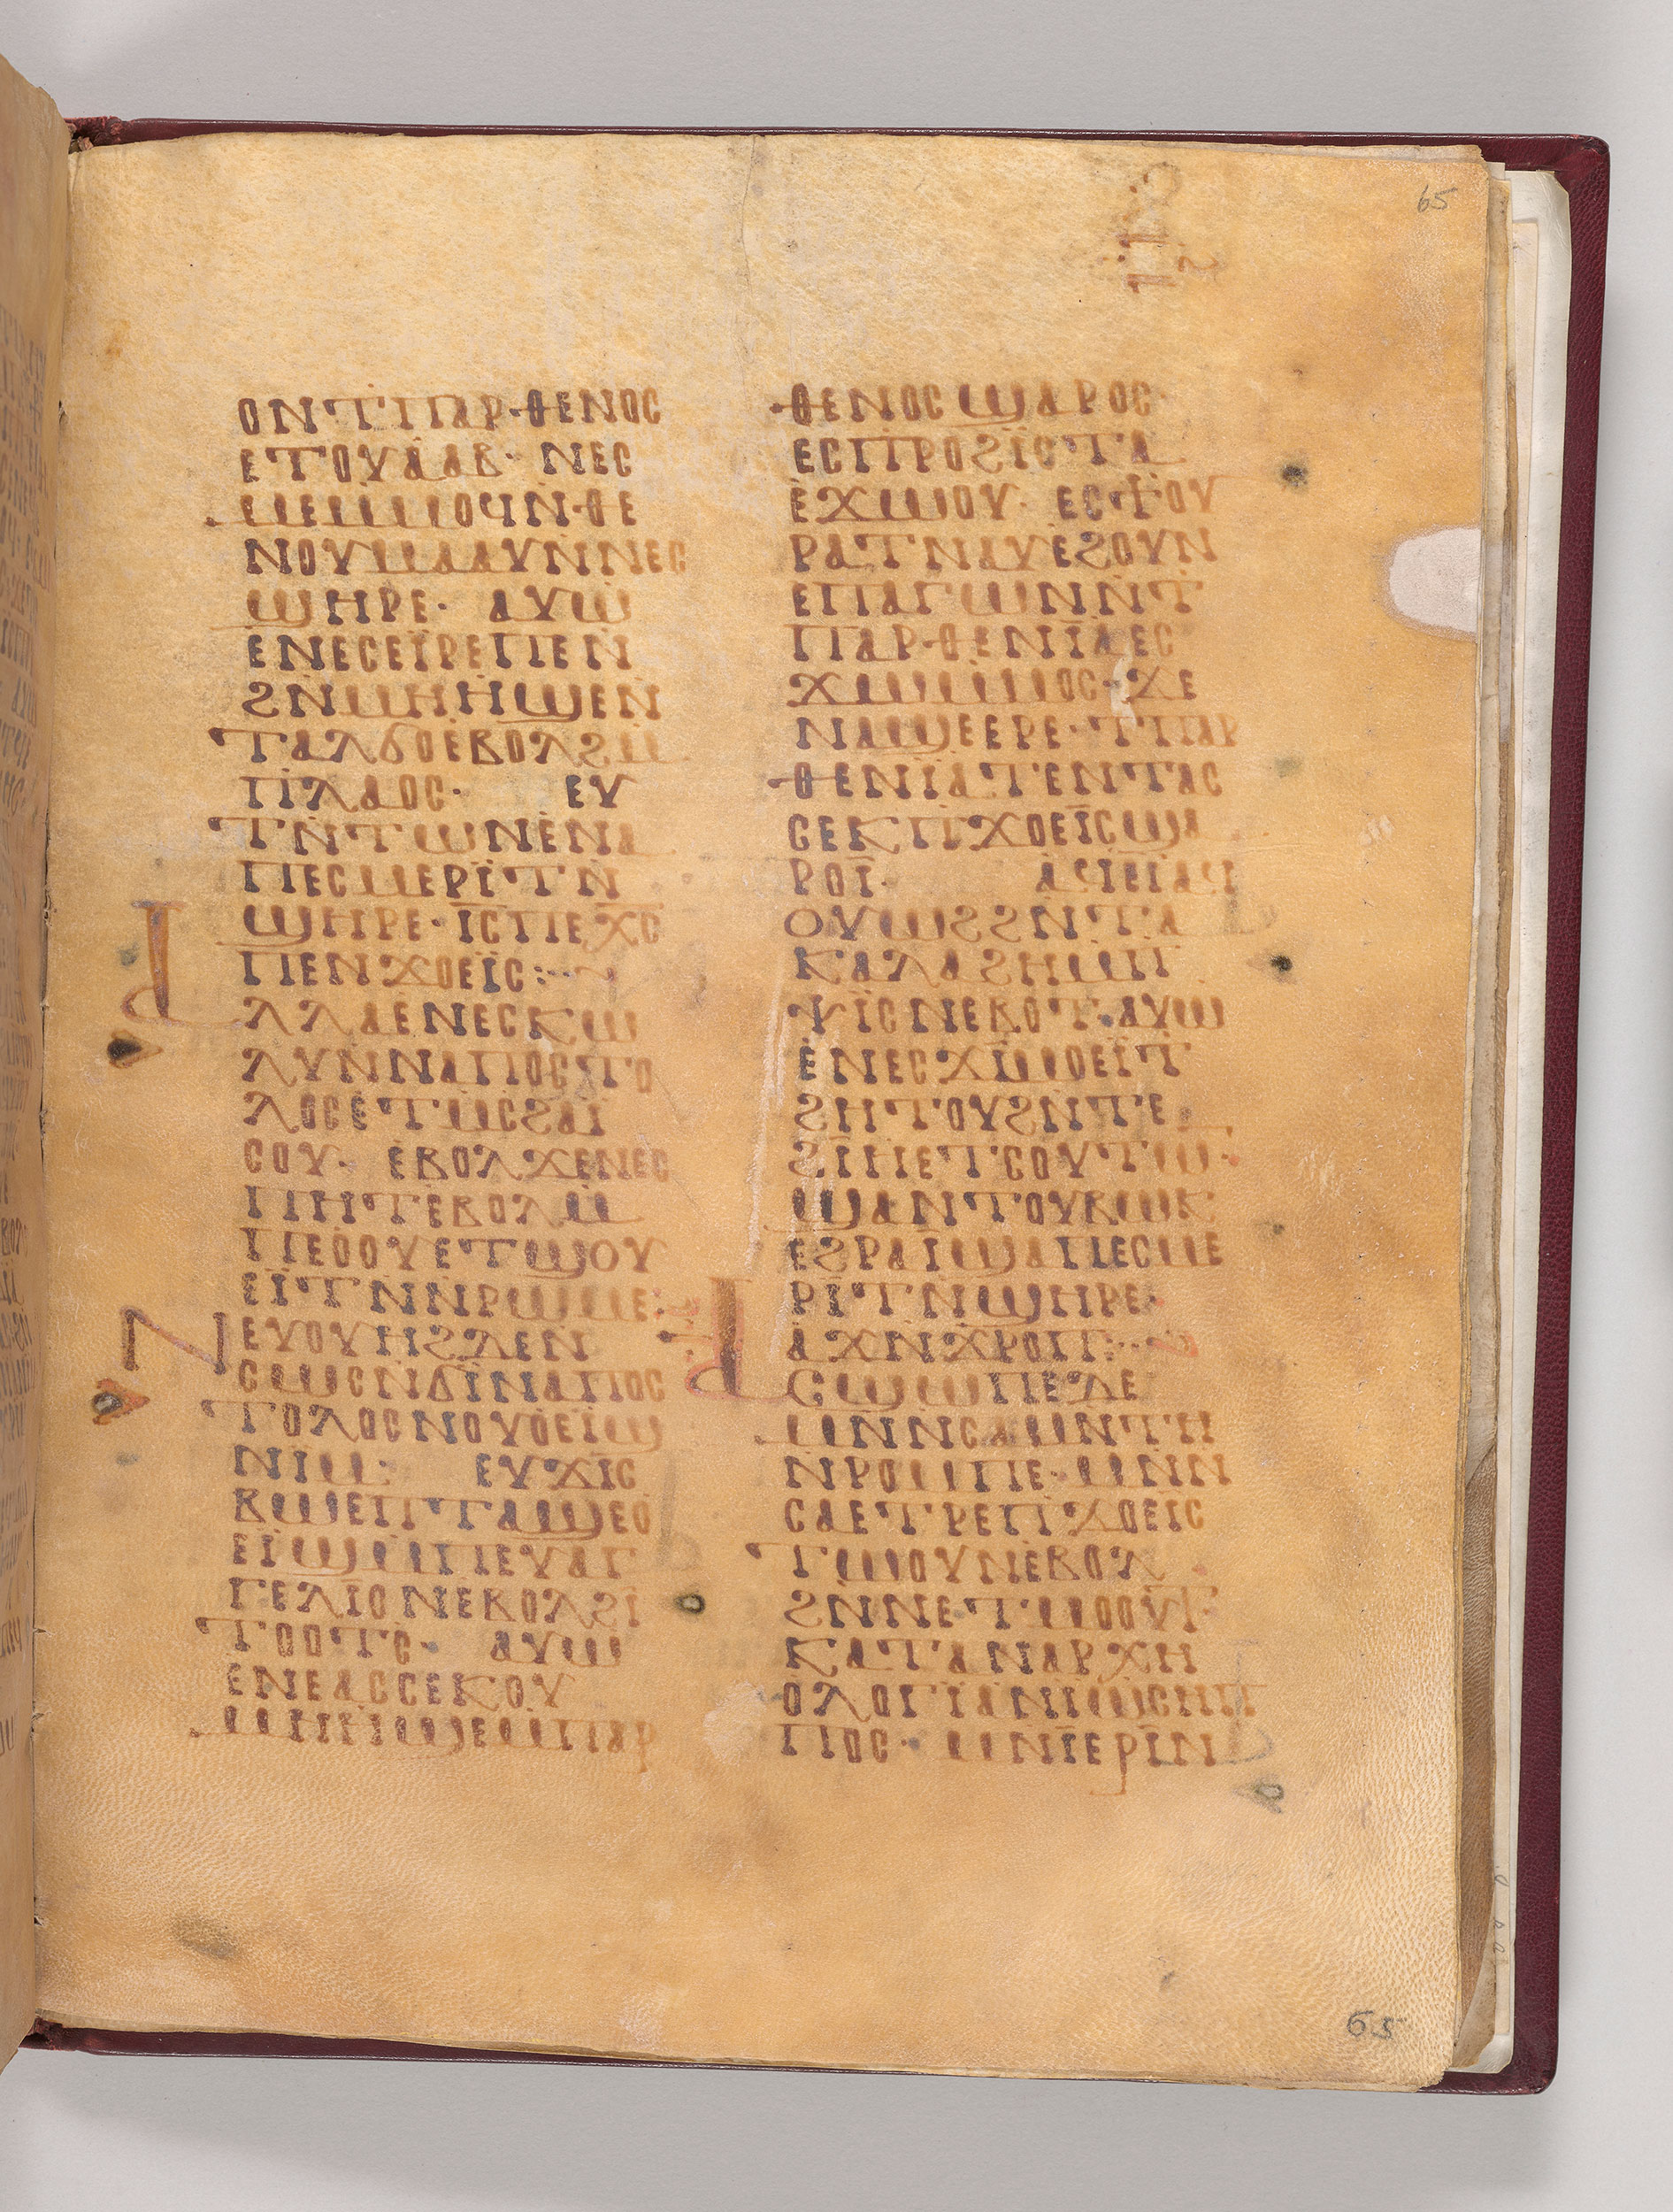 65
ⲟⲛ ⲧⲡⲁⲣⲑⲉⲛⲟⲥ
ⲉⲧⲟⲩⲁⲁⲃ· ⲛⲉⲥ
ⲙⲉⲙⲙⲟϥ ⲛ̀ⲑⲉ
ⲛⲟⲩⲙⲁⲁⲩ ⲛ̀ⲛⲉⲥ
ϣⲏⲣⲉ· ⲁⲩⲱ
ⲉⲛⲉⲥⲉⲓ̈ⲣⲉ ⲡⲉ ⲛ̀
ϩⲛ̀ⲙⲏⲏϣⲉ ⲛ̀
ⲧⲁⲗϭⲟ ⲉⲃⲟⲗ ϩⲙ̀
ⲡⲗⲁⲟⲥ· ⲉⲩ
ⲧⲛ̀ⲧⲱⲛ ⲉ̀ⲛⲁ
ⲡⲉⲥⲙⲉⲣⲓ̈ⲧ ⲛ̀
ϣⲏⲣⲉ· ⲓ̅ⲥ̅ ⲡⲉⲭ̅ⲥ̅
ⲡⲉⲛϫⲟⲉⲓ̈ⲥ:
ⲁⲗⲗⲁ ⲉ̀ⲛⲉⲥⲕⲱ
ⲗⲩ ⲛ̀ⲛⲁⲡⲟⲥⲧⲟ
ⲗⲟⲥ ⲉ̀ⲧⲙ̀ⲥϩⲁⲓ̈
ⲥⲟⲩ· ⲉ̀ⲃⲟⲗ ϫⲉ ⲛⲉⲥ
ⲡⲏⲧ ⲉ̀ⲃⲟⲗ ⲙ̀
ⲡⲉⲟⲟⲩ ⲉⲧϣⲟⲩ
ⲉⲓ̈ⲧ ⲛ̀ⲛⲣⲱⲙⲉ:
ⲛⲉⲩⲟⲩⲏϩ ⲗⲉ ⲛ̀
ⲥⲱⲥ ⲛ̀ϭⲓ ⲛⲁⲡⲟⲥ
ⲧⲟⲗⲟⲥ ⲛⲟⲩⲟⲉⲓ̈ϣ
ⲛⲓⲙ· ⲉⲩϫⲓⲥ
ⲃⲱ ⲉⲡⲧⲁϣⲉⲟ
ⲉⲓ̈ϣ ⲙ̀ⲡⲉⲩⲁⲅ
ⲅⲉⲗⲓⲟⲛ ⲉⲃⲟⲗ ϩⲓ
ⲧⲟⲟⲧⲥ· ⲁⲩⲱ
ⲉⲛⲉⲁⲥⲥⲉⲕ ⲟⲩ
ⲙⲏⲏϣⲉ ⲙ̀ⲡⲁⲣ
ⲑⲉⲛⲟⲥ ϣⲁⲣⲟⲥ
ⲉⲥⲡⲣⲟϩⲓ̈ⲥⲧⲁ
ⲉ̀ϫⲱⲟⲩ· ⲉⲥϯ ⲟⲩ
ⲣⲁⲧ ⲛⲁⲩ ⲉϩⲟⲩⲛ
ⲉⲡⲁⲅⲱⲛ ⲛ̀ⲧ
ⲡⲁⲣⲑⲉⲛⲓ̈ⲁ ⲉⲥ
ϫⲱ ⲙ̀ⲙⲟⲥ· ϫⲉ
ⲛⲁϣⲉⲉⲣⲉ· ⲧⲡⲁⲣ
ⲑⲉⲛⲓ̈ⲁ ⲧⲉⲛⲧⲁⲥ
ⲥⲉⲕ ⲡϫⲟⲉⲓ̈ⲥ ϣⲁ
ⲣⲟⲓ̈·
ⲟⲩⲱϩ ϩⲛ̀ ⲧⲁ
ⲕⲁⲗⲁϩⲏ ⲙ̀ⲯⲓⲥ
ⲛⲉⲃⲟⲧ· ⲁⲩⲱ
ⲉ̀ⲛⲉⲥϫⲓⲙⲟⲉⲓ̈ⲧ
ϩⲏⲧⲟⲩ ϩⲛ̀ ⲧⲉ
ϩⲓⲏ ⲉⲧⲥⲟⲩⲧⲱ
ϣⲁⲛⲧⲟⲩⲃⲱⲕ
ⲉϩⲣⲁⲓ̈ ϣⲁ ⲡⲉⲥⲙⲉ
ⲣⲓ̈ⲧ ⲛ̀ϣⲏⲣⲉ
ⲁϫⲛ̀ ϫⲣⲟⲡ:
ⲁⲥϣⲱⲡⲉ ⲇⲉ
ⲙⲛ̀ⲛⲥⲁ ⲙⲛ̀ⲧⲏ
ⲛⲣⲟⲙⲡⲉ· ⲙⲛ̀ⲛ
ⲥⲁ ⲉⲧⲣⲉ ⲡϫⲟⲉⲓⲥ
ⲧⲱⲟⲩⲛ ⲉⲃⲟⲗ
ϩⲛ̀ ⲛⲉⲧⲙⲟⲟⲩⲧ·
ⲕⲁⲧⲁ ⲛⲁⲣⲭⲏ
ⲟⲗⲟⲅⲓⲁ ⲛⲓⲱⲥⲏⲡ
ⲡⲟⲥ· ⲙⲛ̀ ⲓ̈ⲉⲣⲓⲛ
65